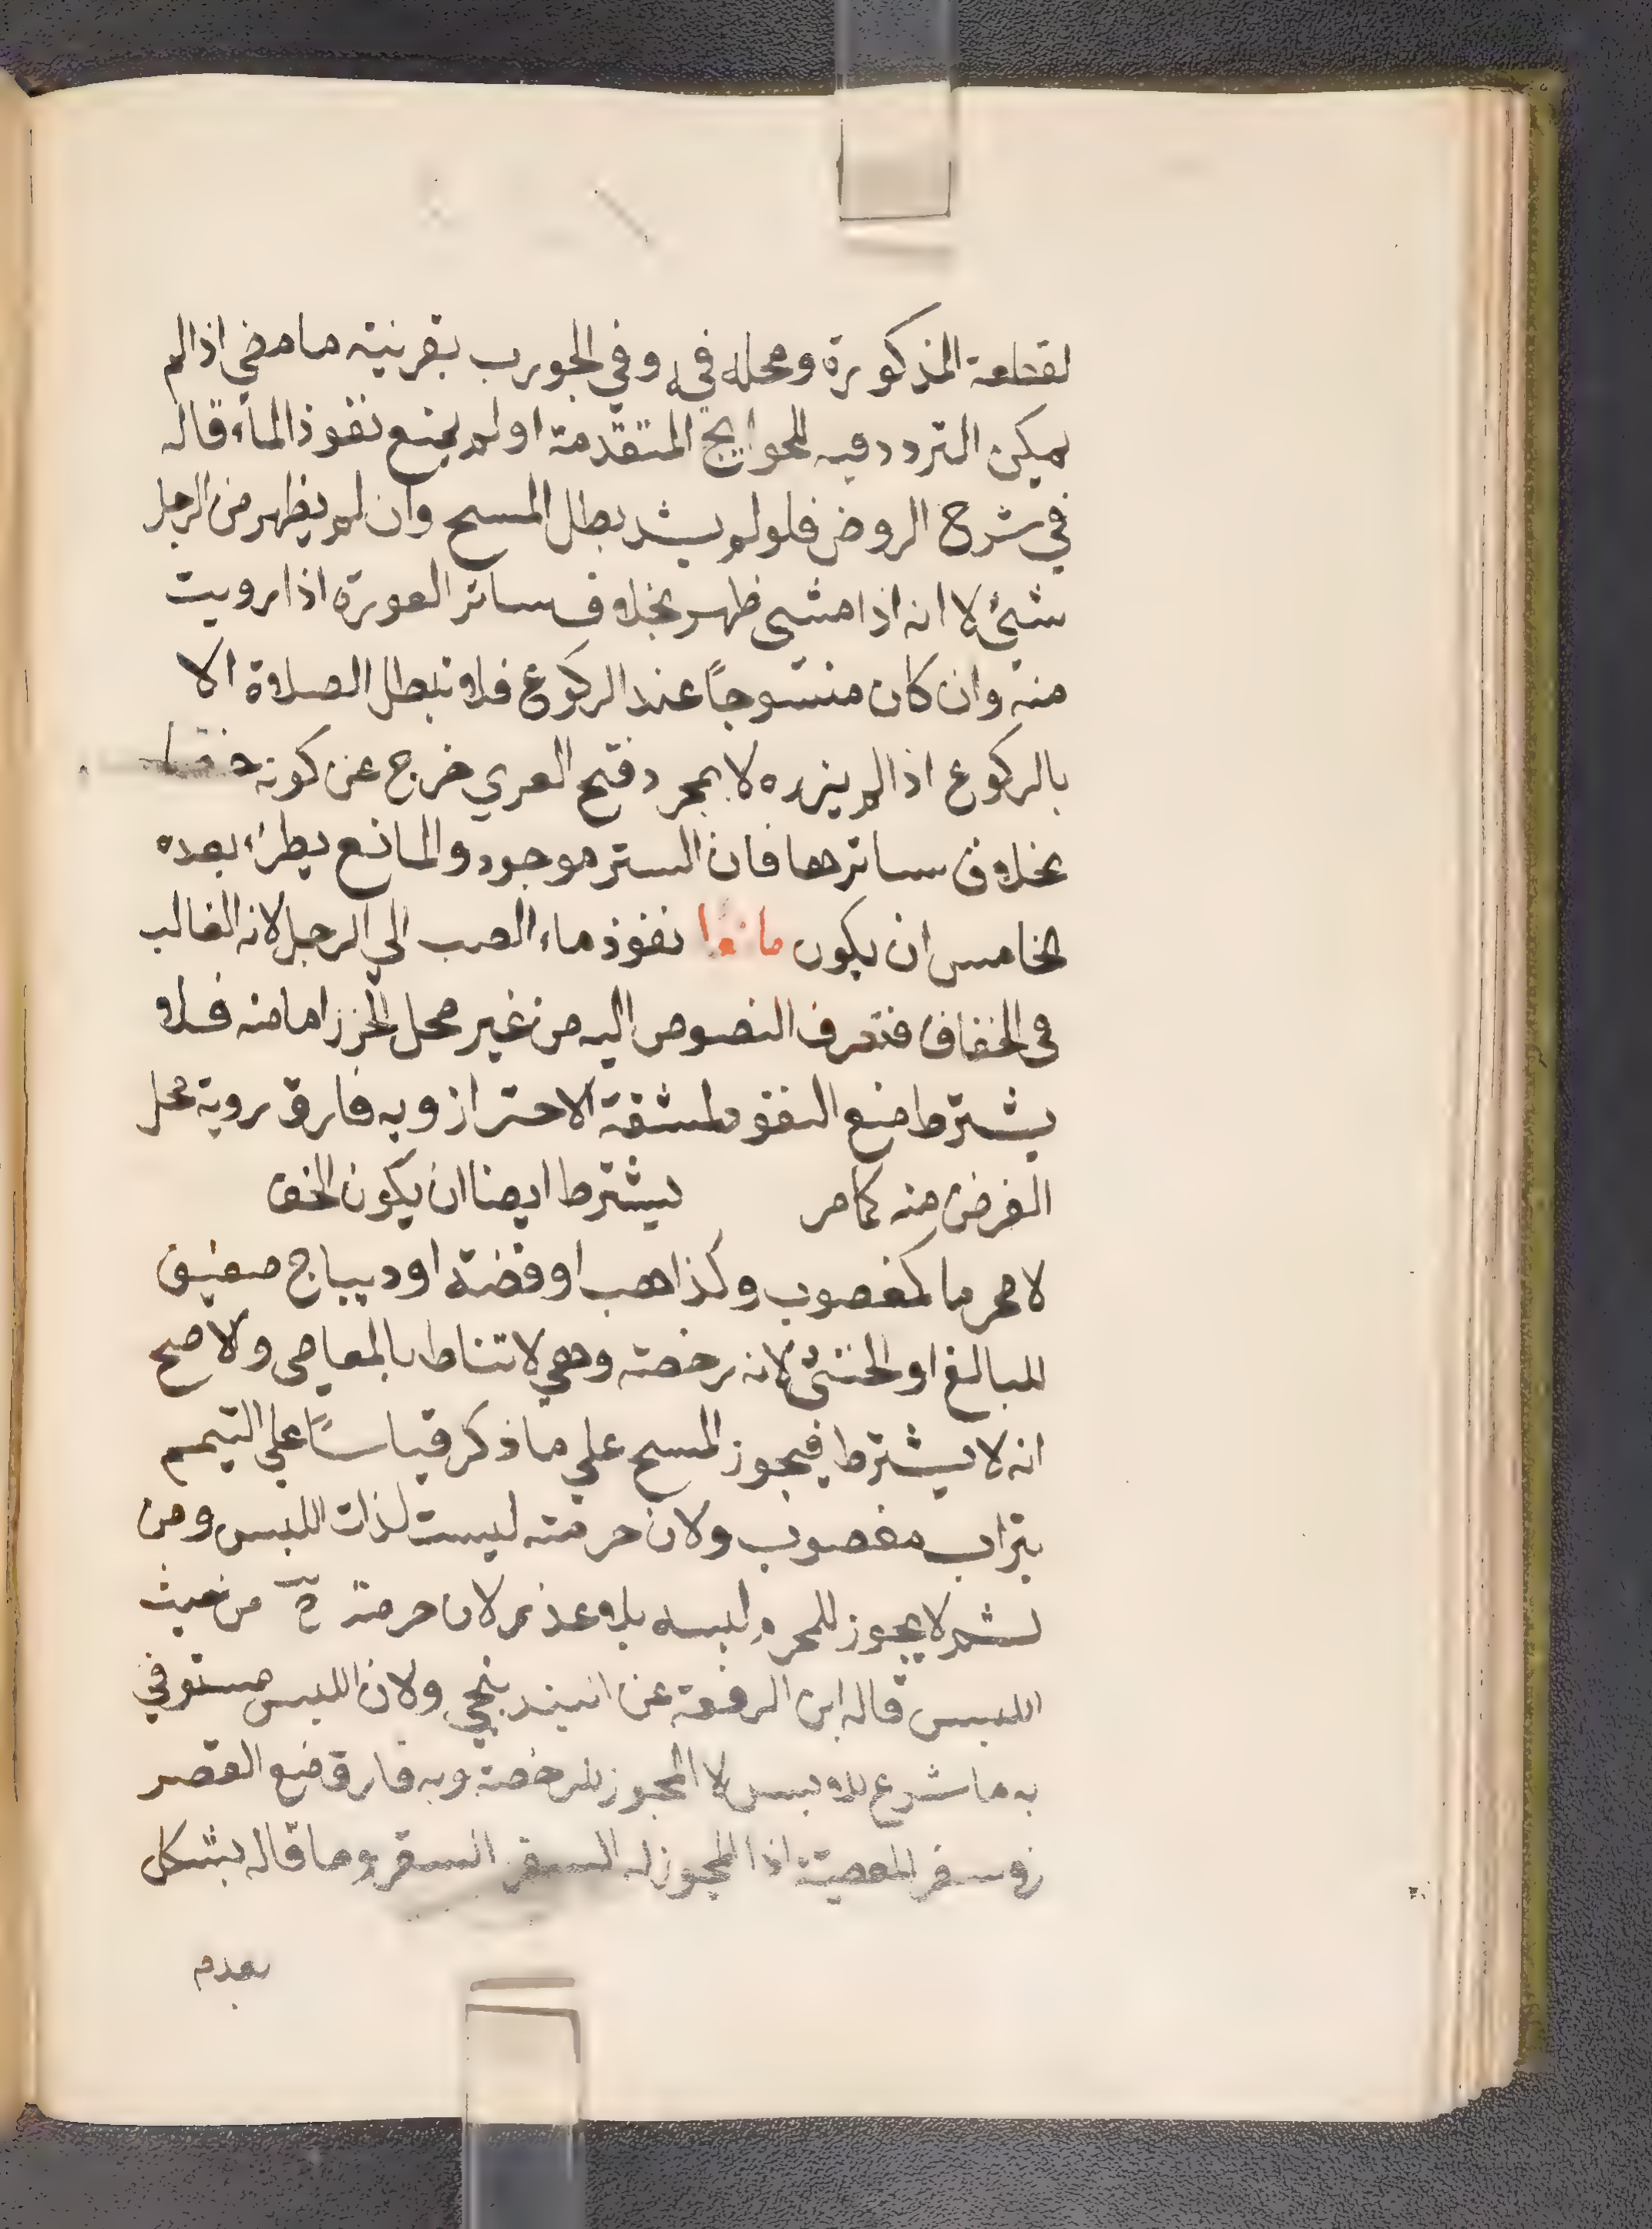 لقطعة المذكورة ومحله فيه وفي الجورب بقرينة ما مضي اذا لم
يمكن التردد فيه للحوايج المتقدمة او لم يمنع نفوذ الماء قاله
في شرح الروض فلو لم يشد بطل المسح وان لم يظهر من الرجل
شئ لا انه اذا مشى ظهر بخلاف ساتر العورة اذا رويت
منه وان كان منسوجاً عند الركوع فلا تبطل الصلاة الا
بالركوع اذا لم يزره لا بمجرد فتح العري خرج عن كونه
بخلاف ساترها فان الستر موجود والمانع يطرء بعده
الخامس ان يكون مانعا نفوذ ماء الصب الي الرجل لانه الغالب
في الخفاف فتصرف النصوص اليه من غير محل الخرز اما منه فلا
يشترط منع النفوذ لمشقة الاحتراز وبه فارق روية محل
الفرض منه كما مر يشترط ايضا ان يكون الخف
لا محرما كمغصوب وكذا هب او فضة او ديباج صفيق
للبالغ او الخنثى لانه رخصة وهي لا تناط بالمعاصي ولاصح
انه لا يشترط فيجوز المسح علي ما ذكر قياساً علي التيمم
بتراب مغصوب ولان حرمته ليست لذات اللبس ومن
ثم لا يجوز للمحرم لبسه بلا عذر لان حرمة ح من حيث
اللبس قاله ابن الرفعة عن البندنيجي ولان اللبس مستوفي
به ما شرع للابس لا المجوز للرخصة وبه فارق منع القصر
في سفر المعصية اذا المجوز له السفر السفر وما قاله يشكل
بعدم